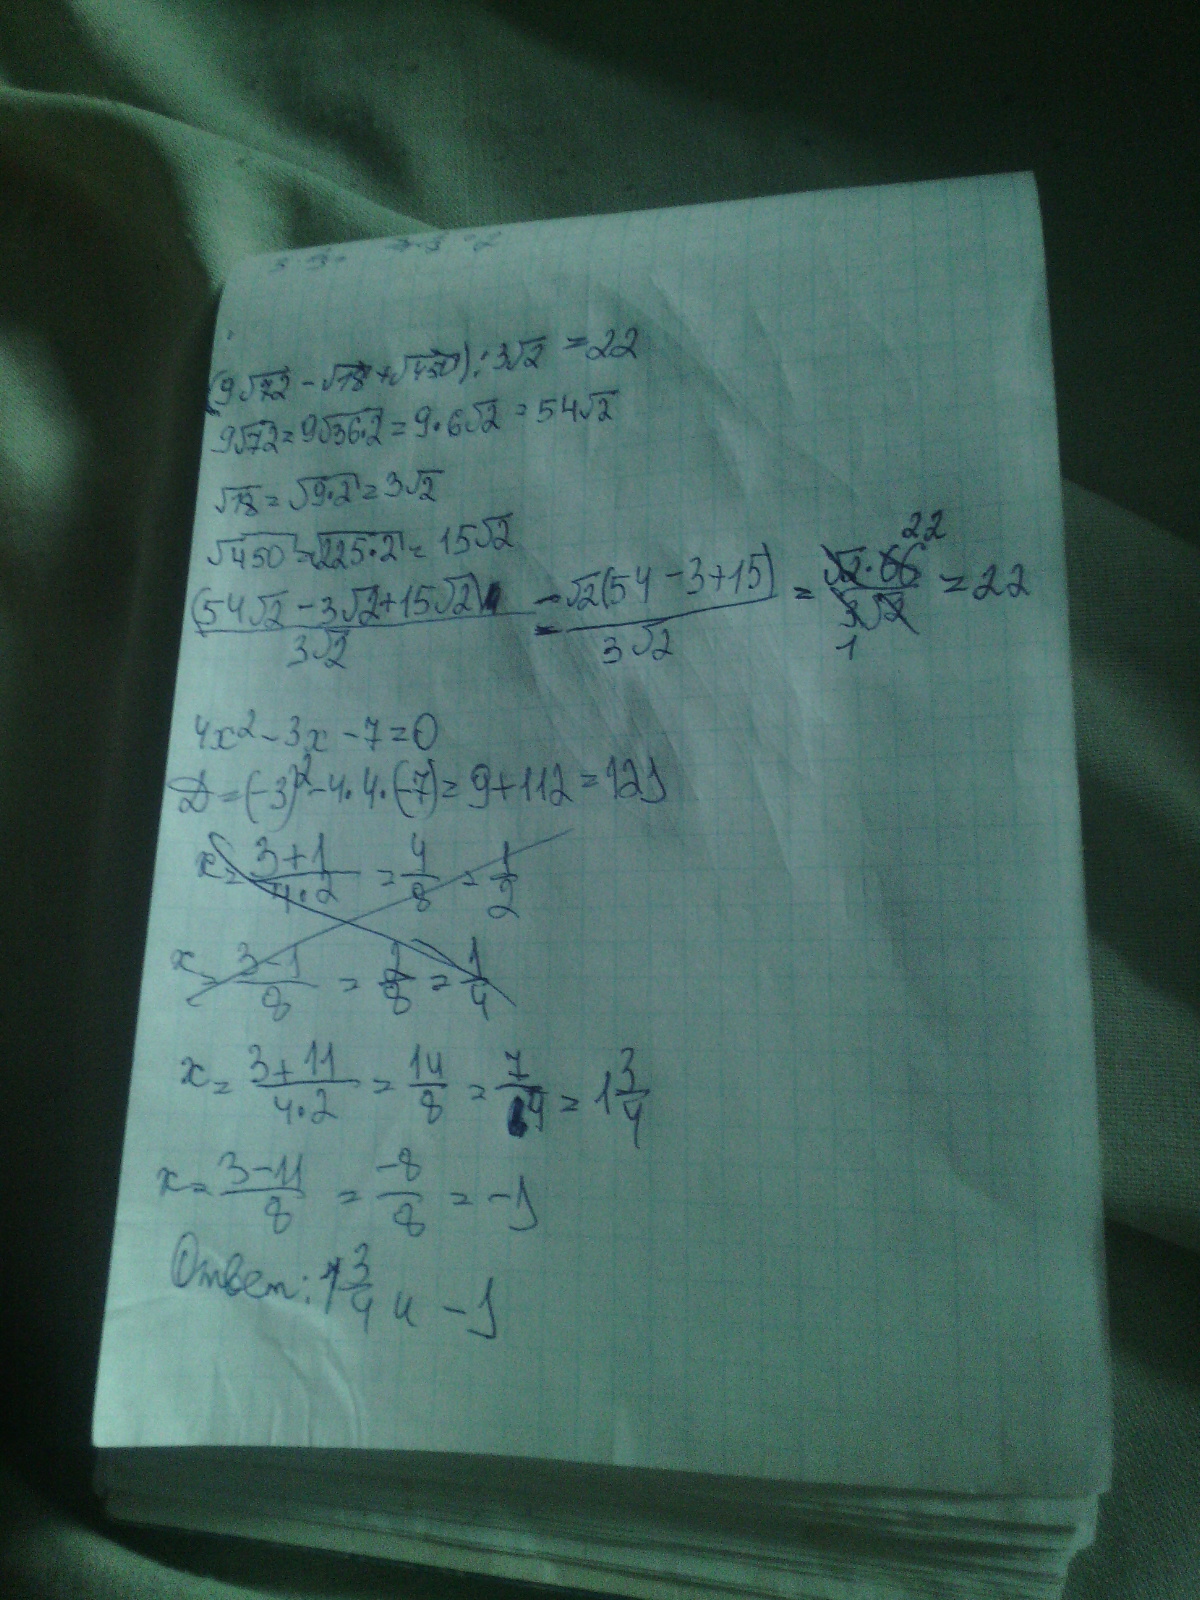 (9√72 - √18 + √450) : 3√2 = 22
9√72 = 9√36·2 = 9·6√2 = 54√2
√18 = √9·2 = 3√2
√450 = √225·2 = 15√2
(54√2 - 3√2 + 15√2) / 3√2 = √2(54 - 3 + 15) / 3√2 = √2·66 22 / 3√2 1 = 22
4x² - 3x - 7 = 0
D = (-3)² - 4·4·(-7) = 9 + 112 = 121
x = 3+1 / 4·2 = 4/8 = 1/2
x = 3-1 / 8 = 2/8 = 1/4
x = 3+11 / 4·2 = 14/8 = 7/4 = 1 3/4
x = 3-11 / 8 = -8/8 = -1
Ответ: 1 3/4 и -1